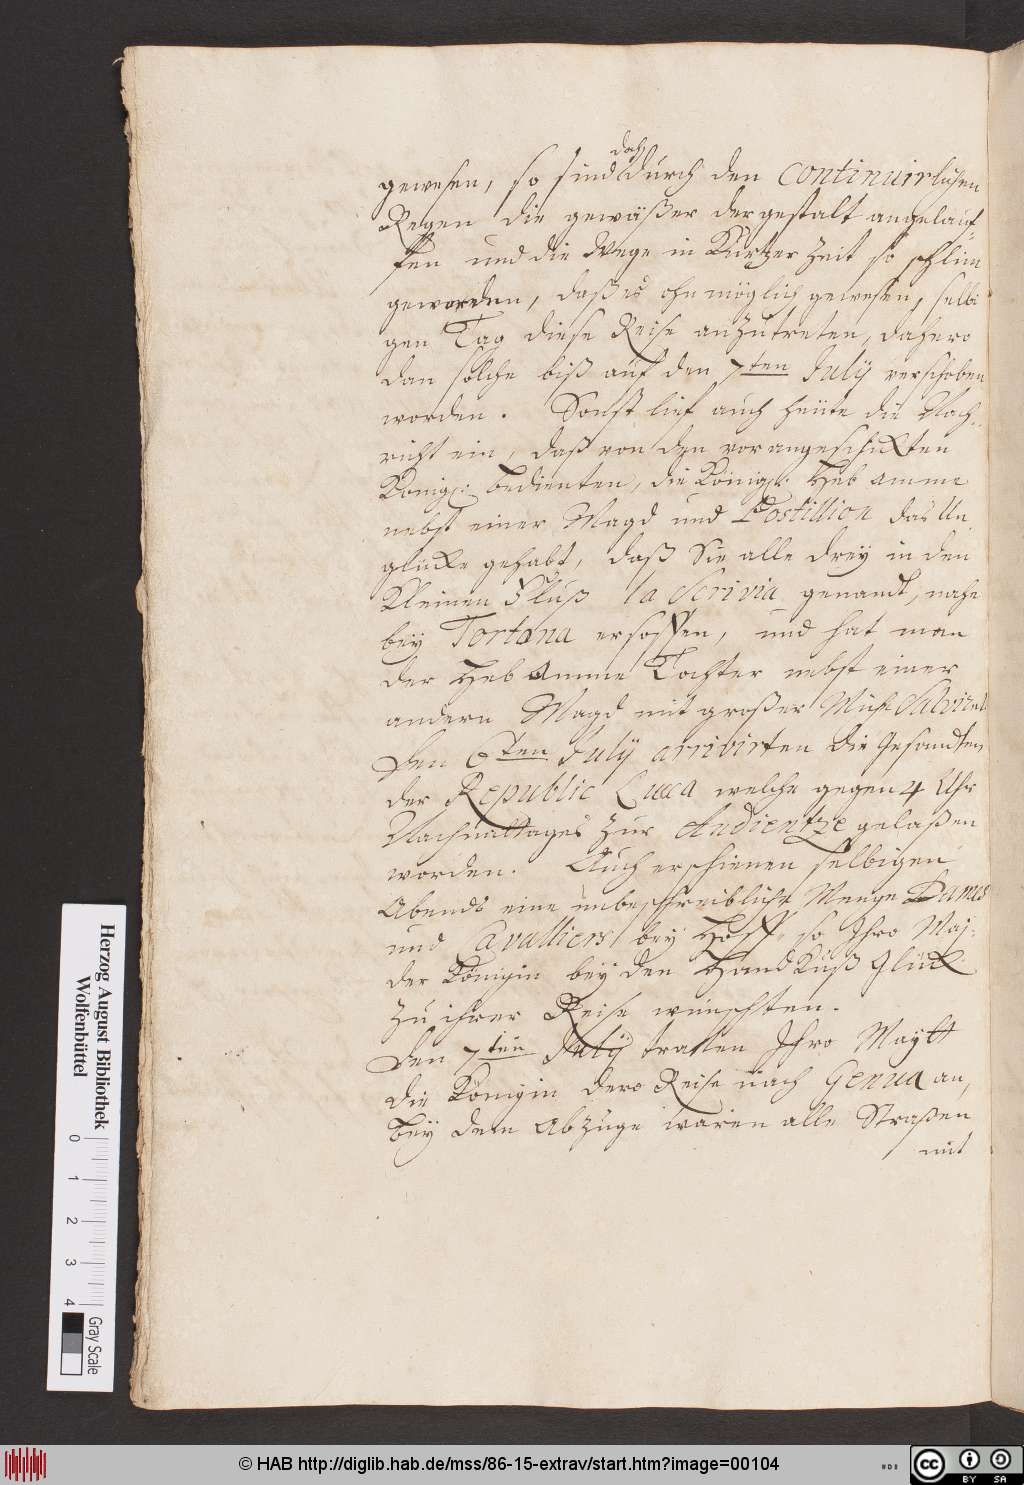 doch
gewesen, so sind durch den continuirlichen
Regen die gewäßer dergestalt angelauf-
fen und die Wege in Kurtzer Zeit so schlim
geworden, daß es ohnmöglich gewesen, selbi
gen Tag diese Reise anzutreten, dahero
dan solche biß auf den 7ten July verschoben
worden. Sonst lief auch heüte die Nach-
richt ein, daß von den vorangeschikten
Königl: bedienten, die Königl: Heb amme
nebst einer Magd und Postillion das Un
glücke gehabt, daß Sie alle drey in den
Kleinen Fluß la Scrivia genandt, nahe
bey Tortona ersoffen, und hat man
der Heb Amme Tochter nebst einer
andern Magd mit großer Müh Salviret
Den 6ten July arrivirten die Gesandten
der Republic Lucca welche gegen 4 Uhr
Nachmittages zur Audientze gelaßen
worden. Auch erschienen selbigen
Abends eine unbeschreibliche Menge Dames
und Cavalliers bey Hoff, so Ihro Maj:
der Königin bey den Hand Kuß Glück
zu ihrer Reise wünschten.
Den 7ten July traten Ihro Maytt
die Königin dero Reise nach Genua an,
bey dem Abzuge waren alle Straßen
mit
Herzog August Bibliothek
Wolfenbüttel
0 1 2 3 4
Gray Scale
© HAB http://diglib.hab.de/mss/86-15-extrav/start.htm?image=00104
CC BY SA